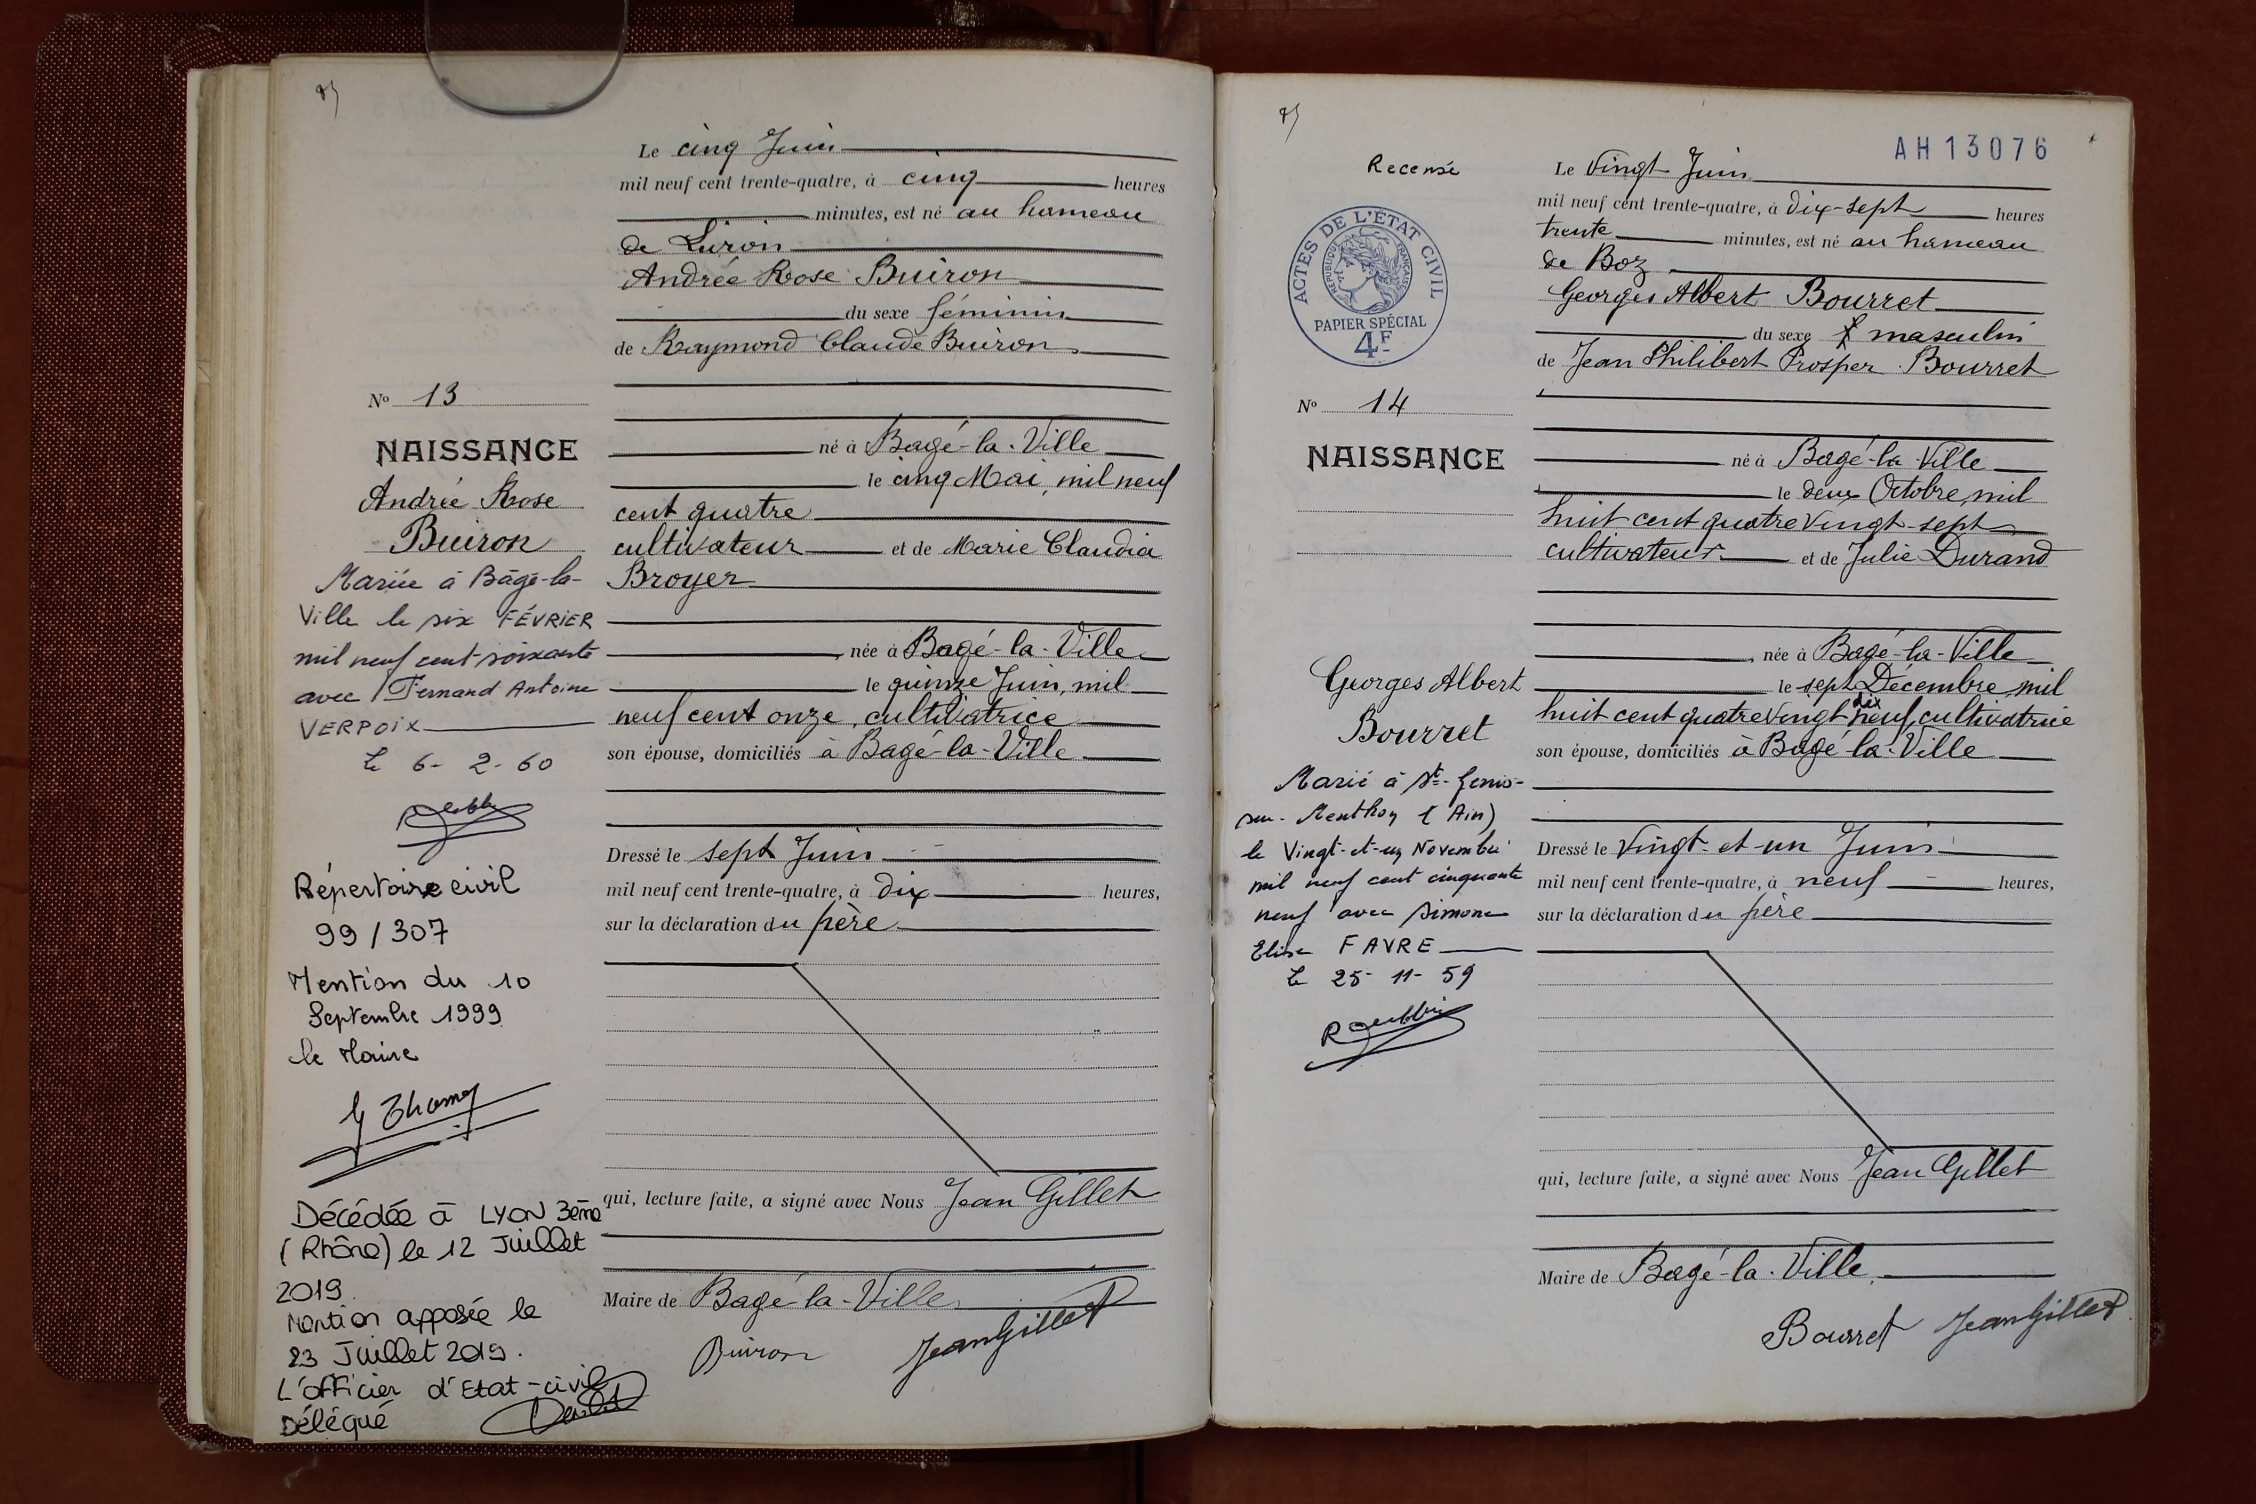 Le cinq Juin
mil neuf cent trente-quatre, à cinq heures
minutes, est né au hameau
de Liron
Andrée Rose Buiron
du sexe féminin
de Raymond Claude Buiron
né à Bagé-la-Ville
le cinq Mai, mil neuf
cent quatre
cultivateur et de Marie Claudia
Broyer
née à Bagé-la-Ville
le quinze Juin, mil
neuf cent onze, cultivatrice
son épouse, domiciliés à Bagé-la-Ville
Dressé le sept Juin
mil neuf cent trente-quatre, à dix heures,
sur la déclaration du père
qui, lecture faite, a signé avec Nous Jean Gillet
Maire de Bagé-la-Ville
Buiron JeanGillet
No 13
NAISSANCE
Andrée Rose
Buiron
Mariée à Bâgé-la-
Ville le six FÉVRIER
mil neuf cent soixante
avec Fernand Antoine
VERPOIX
le 6-2-60
Répertoire civil
99/307
Mention du 10
Septembre 1999
le Maire
Décédée à LYON 3ème
(Rhône) le 12 Juillet
2019.
Mention apposée le
23 Juillet 2019.
L'officier d'Etat-civil
Délégué
AH13076
Recensé
ACTES DE L'ÉTAT CIVIL
RÉPUBLIQUE FRANÇAISE
PAPIER SPÉCIAL
4F
No 14
NAISSANCE
Georges Albert
Bourret
Marié à St-Genis-
sur-Menthon (Ain)
le Vingt-et-un Novembre
mil neuf cent cinquante
neuf avec Simone
Elise FAVRE
le 25-11-59
Le Vingt Juin
mil neuf cent trente-quatre, à dix-sept heures
trente minutes, est né au hameau
de Boz
Georges Albert Bourret
du sexe masculin
de Jean Philibert Prosper Bourret
né à Bagé-la-Ville
le deux Octobre, mil
huit cent quatre vingt-sept
cultivateur et de Julie Durand
née à Bagé-la-Ville
le sept Décembre mil
huit cent quatre vingt dix neuf, cultivatrice
son épouse, domiciliés à Bagé-la-Ville
Dressé le Vingt-et-un Juin
mil neuf cent trente-quatre, à neuf heures,
sur la déclaration du père
qui, lecture faite, a signé avec Nous Jean Gillet
Maire de Bagé-la-Ville
Bourret JeanGillet